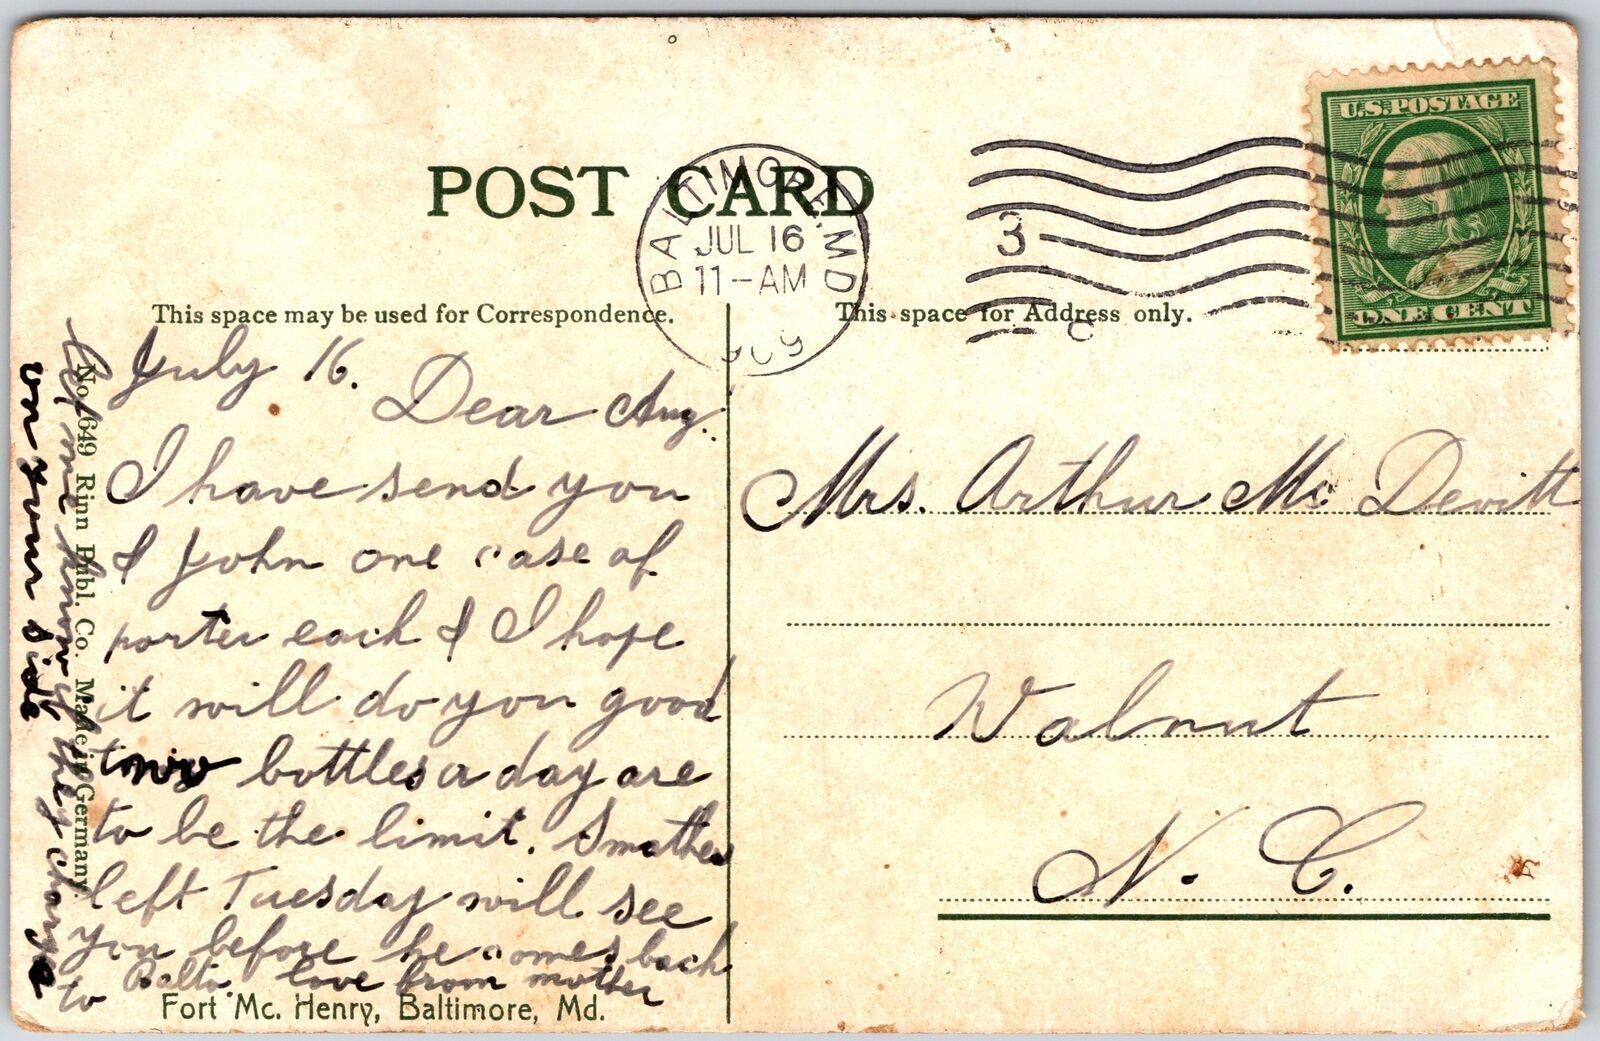 POST CARD
BALTIMORE, MD.
JUL 16
11-AM
3
U.S. POSTAGE
ONE CENT
This space may be used for Correspondence.
This space for Address only.
July 16.
Dear Aug.
I have send you
& John one case of
porter each & I hope
it will do you good
two bottles a day are
to be the limit. Smathes
left Tuesday will see
you before he comes back
to Balto. love from mother
Let me know if they charge
on your side
No. 649 Rinn Publ. Co. Made in Germany.
Fort Mc. Henry, Baltimore, Md.
Mrs. Arthur Mc Devitt
Walnut
N. C.